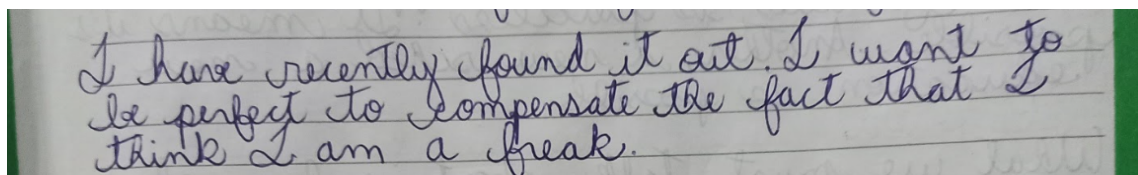 I have recently found it out. I want to
be perfect to compensate the fact that I
think I am a freak.